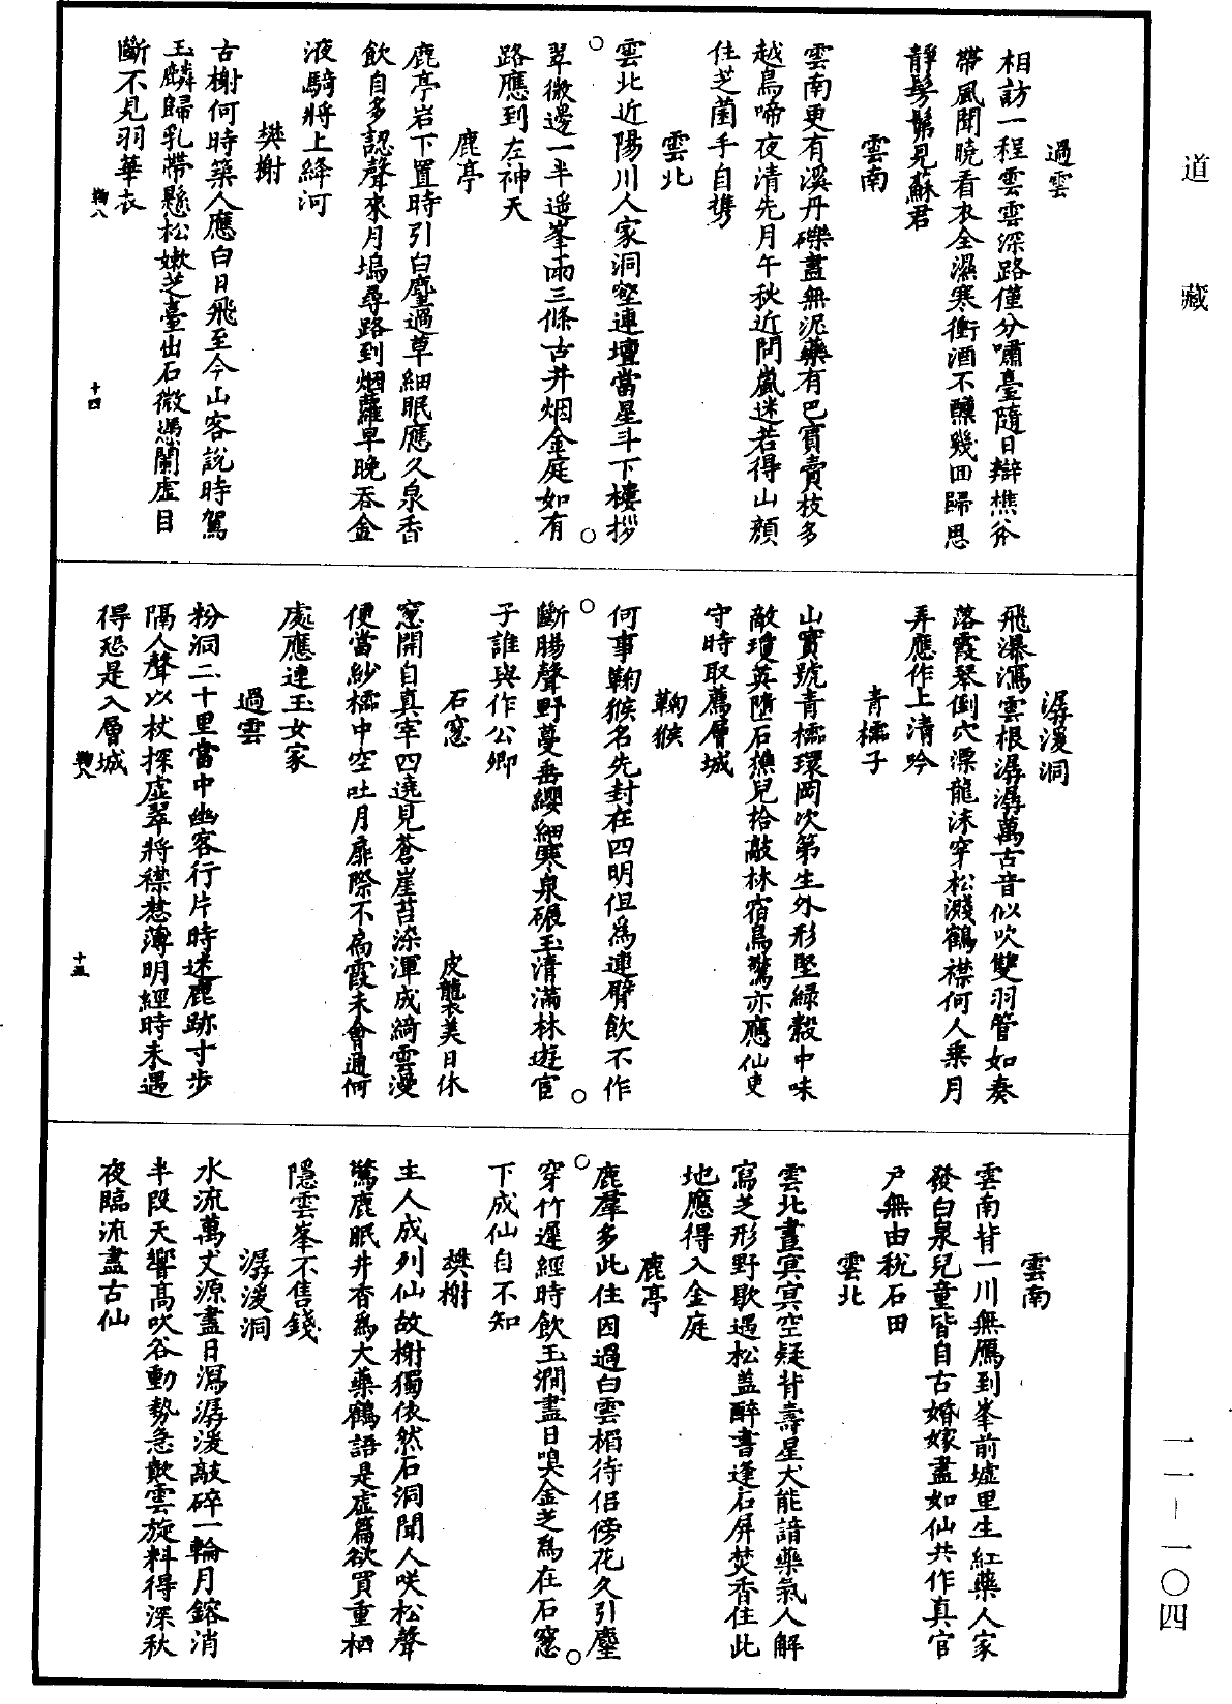 道藏
過雲
相訪一程雲雲深路僅分嘯臺隨日辯樵斧
帶風聞曉看衣全濕寒衝酒不醺幾回歸思
靜髣髴見蘇君
雲南
雲南更有溪丹礫盡無泥藥有巴賓賣枝多
越鳥啼夜清先月午秋近問嵐迷若得山顏
住芝菌手自攜
雲北
雲北近陽川人家洞壑連壇當星斗下樓拶
翠微邊一半遥峯雨三條古井烟金庭如有
路應到左神天
鹿亭
鹿亭岩下置時引白麞過草細眠應久泉香
飲自多認聲來月塢尋路到烟蘿早晚吞金
液騎將上絳河
樊榭
古榭何時築人應白日飛至今山客說時駕
玉麟歸乳帶懸松嫩芝臺出石微憑闌虛目
斷不見羽華衣
鞠八
十四
潺湲洞
飛瀑瀉雲根潺潺萬古音似吹雙羽管如奏
落霞琴倒穴漂龍沫穿松濺鶴襟何人乘月
弄應作上清吟
青櫺子
山實號青櫺環岡次第生外形堅綠殼中味
敵瓊英墮石樵兒拾敲林宿鳥驚亦應仙吏
守時取薦層城
鞠猴
何事鞠猴名先封在四明但爲連臂飲不作
斷腸聲野蔓垂纓細寒泉礙玉清滿林遊宦
子誰與作公卿
石窓
皮襲美日休
窓開自真宰四遶見蒼崖苔染渾成綺雲漫
便當紗櫺中空吐月扉際不扃霞未會通何
處應連玉女家
過雲
粉洞二十里當中幽客行片時迷鹿跡寸步
隔人聲以杖探虛翠將襟惹薄明經時未遇
得恐是入層城
鞠八
十五
雲南
雲南背一川無鴈到峯前墟里生紅藥人家
發白泉兒童皆自古婚嫁盡如仙共作真官
戶無由稅石田
雲北
雲北晝冥冥空疑背壽星犬能諳藥氣人解
寫芝形野歇遇松蓋醉書逢石屏焚香住此
地應得入金庭
鹿亭
鹿羣多此住因過白雲楣待侣傍花久引麞
穿竹遲經時飲玉澗盡日嗅金芝爲在石窓
下成仙自不知
樊榭
主人成列仙故榭獨依然石洞聞人咲松聲
驚鹿眠井香爲大藥鶴語是虛篇欲買重栖
隱雲峯不售錢
潺湲洞
水流萬丈源盡日瀉潺湲敲碎一輪月鎔消
半段天響高吹谷動勢急歕雲旋料得深秋
夜臨流盡古仙
一一–一〇四